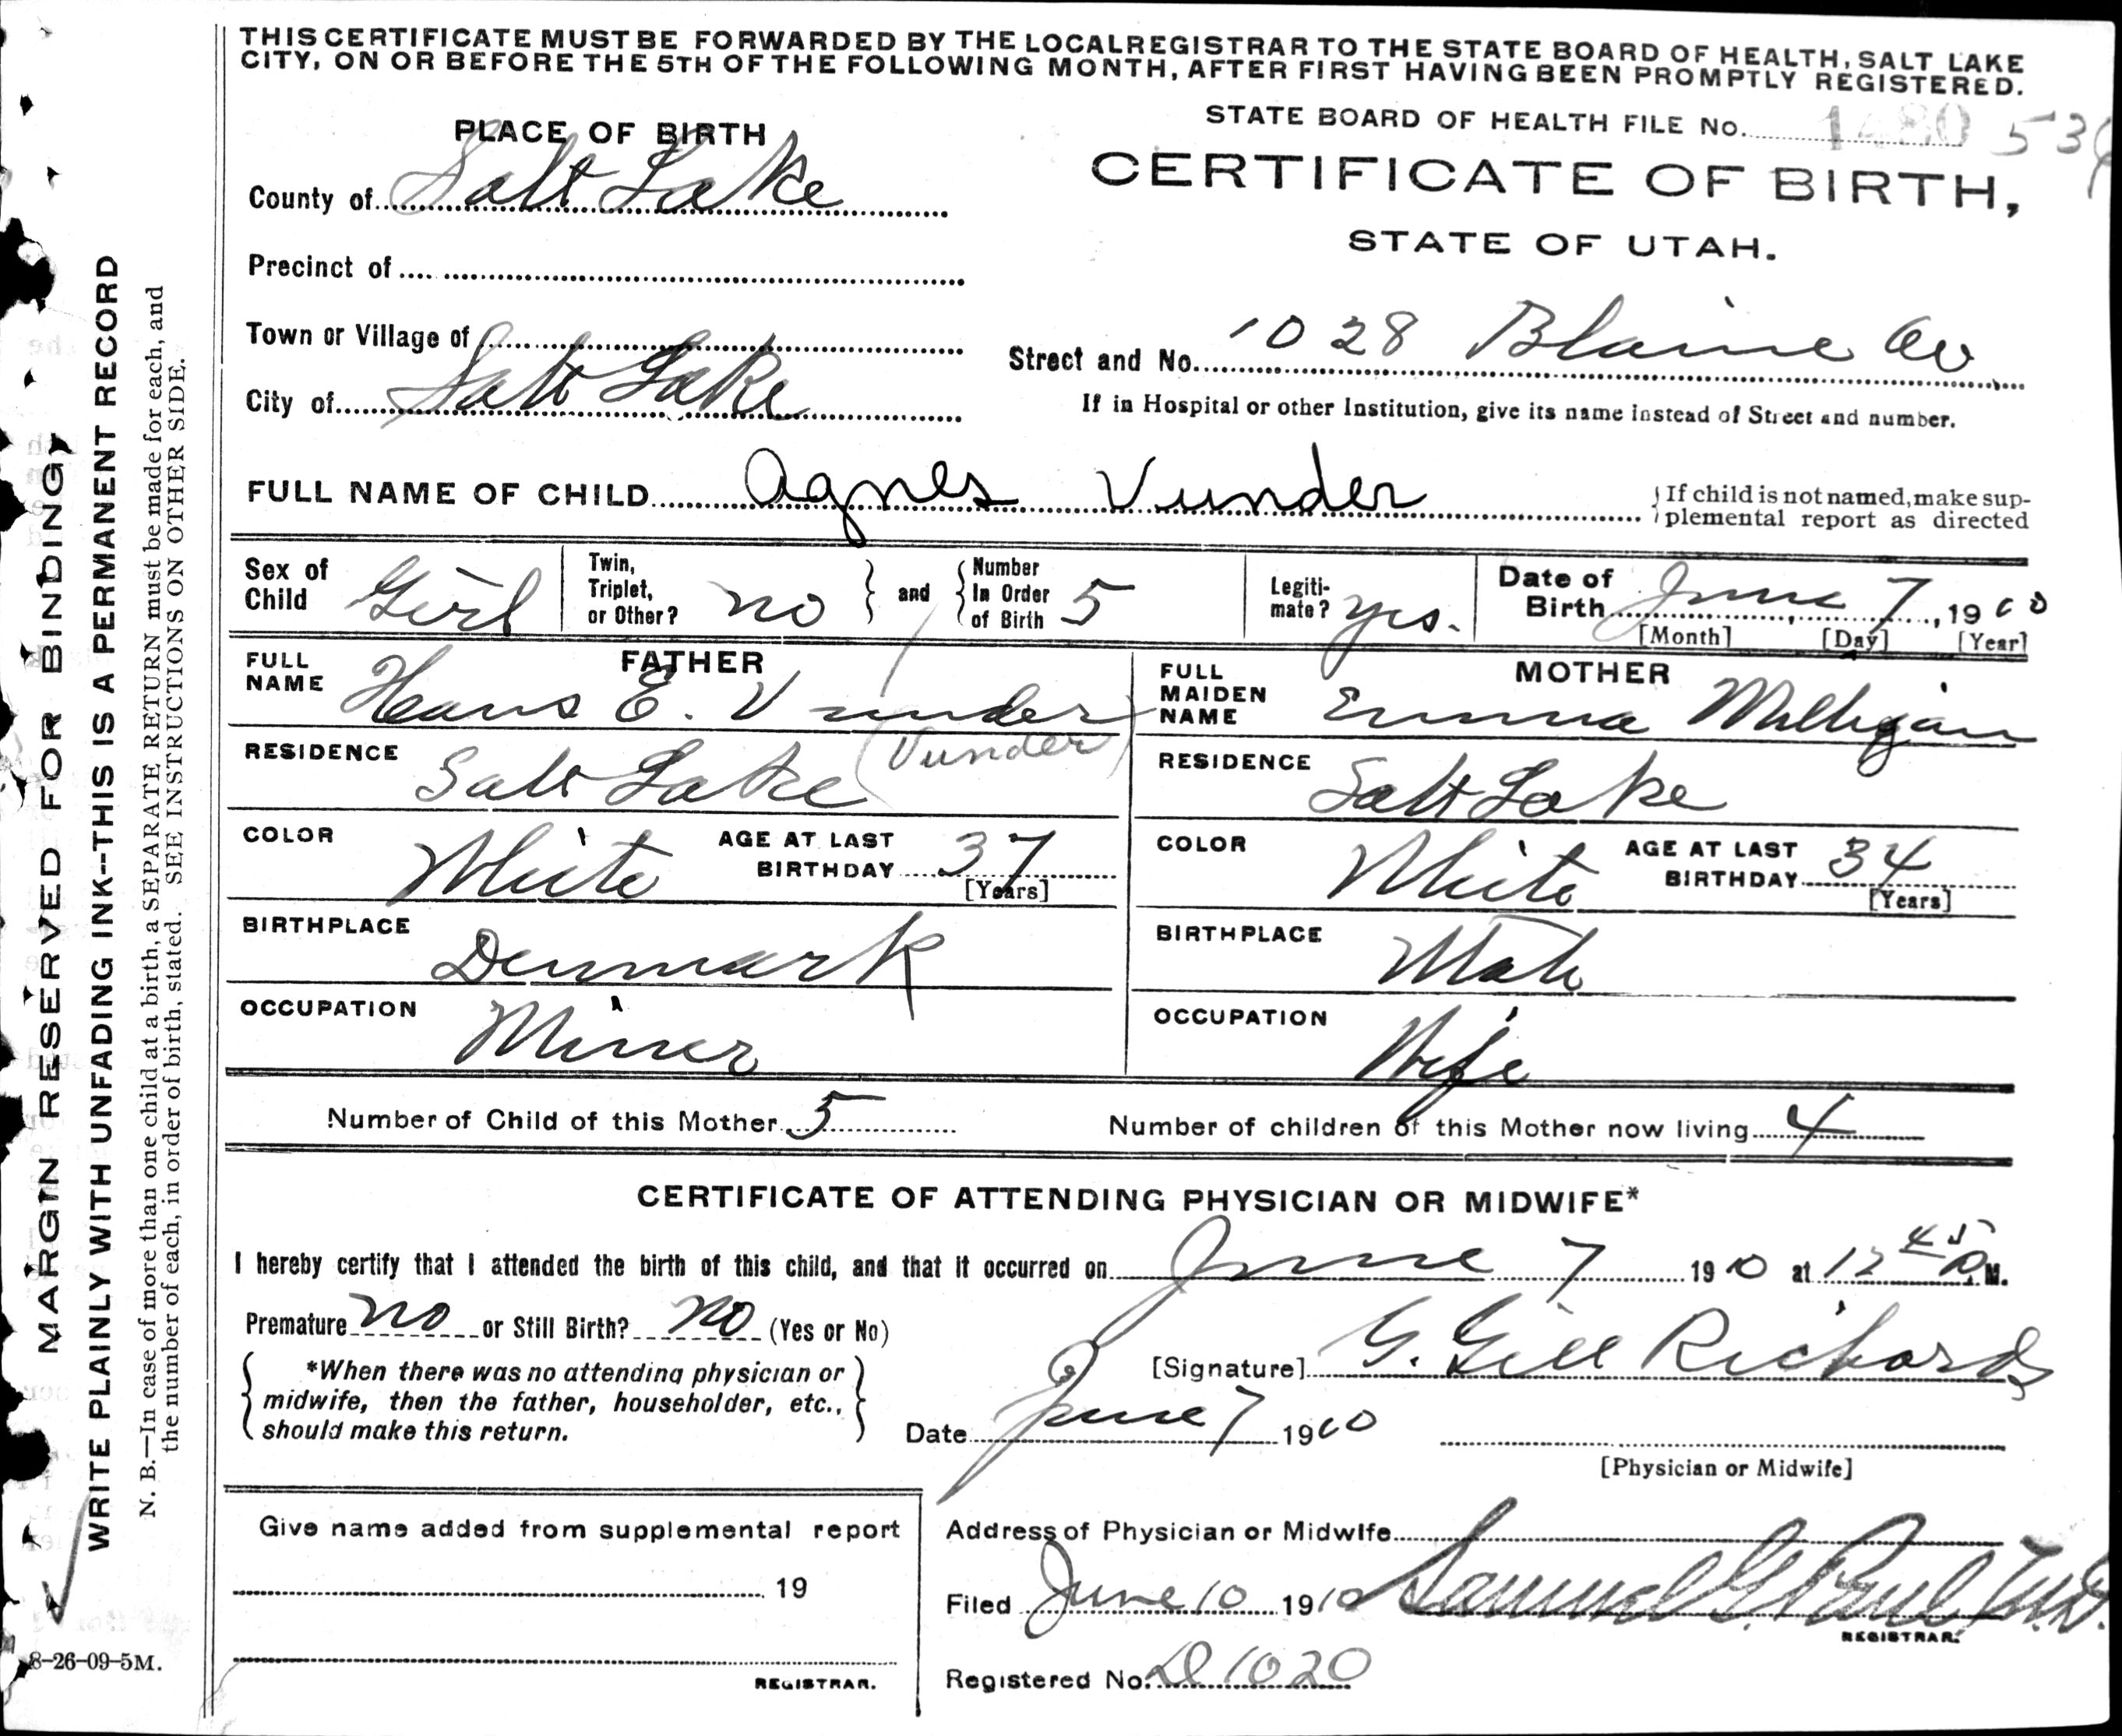 THIS CERTIFICATE MUST BE FORWARDED BY THE LOCAL REGISTRAR TO THE STATE BOARD OF HEALTH, SALT LAKE
CITY, ON OR BEFORE THE 5TH OF THE FOLLOWING MONTH, AFTER FIRST HAVING BEEN PROMPTLY REGISTERED.
STATE BOARD OF HEALTH FILE No.
PLACE OF BIRTH
CERTIFICATE OF BIRTH,
STATE OF UTAH.
County of Salt Lake
Precinct of
Town or Village of
City of Salt Lake
Street and No. 1028 Blaine Av
If in Hospital or other Institution, give its name instead of Street and number.
FULL NAME OF CHILD Agnes Vunder
If child is not named, make sup-
plemental report as directed
Sex of Child Girl
Twin, Triplet, or Other? no
and
Number In Order of Birth 5
Legiti-mate? yes.
Date of Birth June 7, 1910
[Month] [Day] [Year]
FATHER
FULL NAME Hans E. Vunder
(Vunder)
RESIDENCE Salt Lake
COLOR White
AGE AT LAST BIRTHDAY 37
[Years]
BIRTHPLACE Denmark
OCCUPATION Miner
MOTHER
FULL MAIDEN NAME Emma Milligan
RESIDENCE Salt Lake
COLOR White
AGE AT LAST BIRTHDAY 34
[Years]
BIRTHPLACE Utah
OCCUPATION Wife
Number of Child of this Mother 5
Number of children of this Mother now living 4
CERTIFICATE OF ATTENDING PHYSICIAN OR MIDWIFE*
I hereby certify that I attended the birth of this child, and that it occurred on June 7 1910 at 12 45 P.M.
Premature no or Still Birth? no (Yes or No)
*When there was no attending physician or
midwife, then the father, householder, etc.,
should make this return.
[Signature] G. Gill Richards
Date June 7 1910
[Physician or Midwife]
Give name added from supplemental report
19
REGISTRAR.
Address of Physician or Midwife
Filed June 10 1910 Samuel G. Paul M.D.
REGISTRAR.
Registered No. D1020
MARGIN RESERVED FOR BINDING,
WRITE PLAINLY WITH UNFADING INK--THIS IS A PERMANENT RECORD
N. B.—In case of more than one child at a birth, a SEPARATE RETURN must be made for each, and
the number of each, in order of birth, stated. SEE INSTRUCTIONS ON OTHER SIDE.
8-26-09-5M.